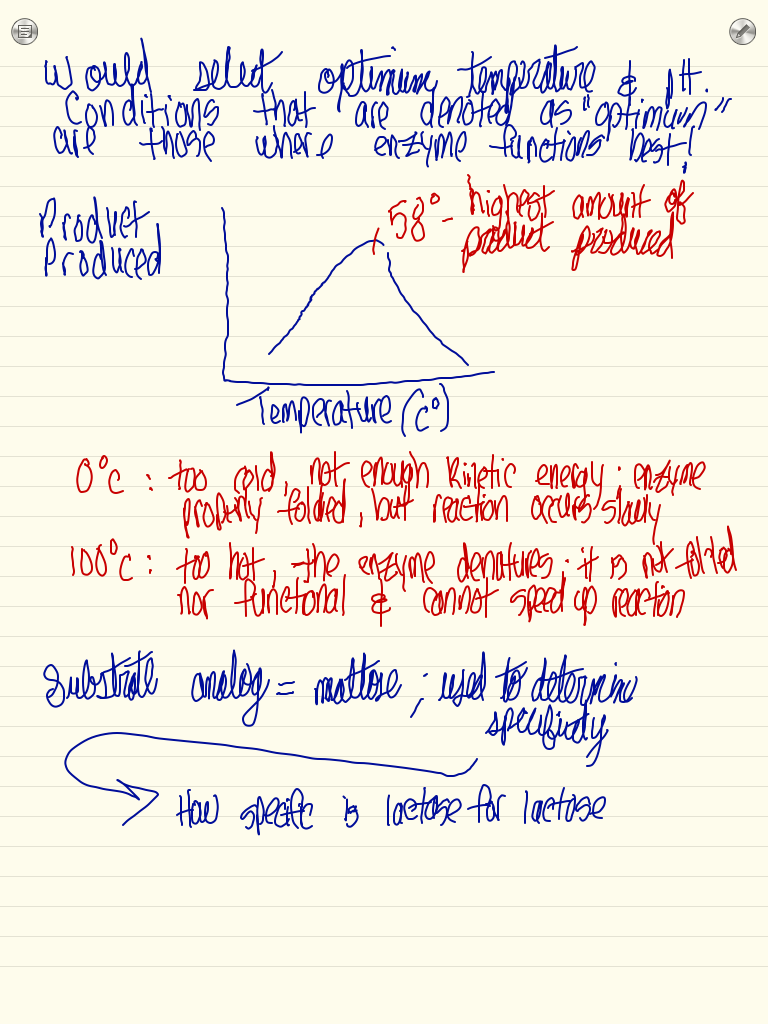 Would select optimum temperature & pH.
Conditions that are denoted as "optimum"
are those where enzyme functions best!
Product Produced
58° - highest amount of
product produced
Temperature (C°)
0°C : too cold, not enough kinetic energy; enzyme
properly folded, but reaction occurs slowly
100°C : too hot, the enzyme denatures; it is not folded
nor functional & cannot speed up reaction
Substrate analog = maltose ; used to determine
specificity
How specific is lactose for lactose